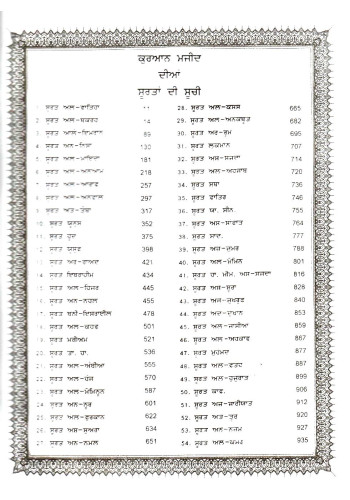 ਕੁਰਆਨ ਮਜੀਦ
ਦੀਆ
ਸੂਰਤਾਂ ਦੀ ਸੂਚੀ
1 ਸੂਰਤ ਅਲ-ਫਾਤਿਹਾ 11
2 ਸੂਰਤ ਅਲ-ਬਕਰਹ 14
3 ਸੂਰਤ ਆਲੇ-ਇਮਰਾਨ 89
4 ਸੂਰਤ ਅਨ-ਨਿਸਾ 130
5 ਸੂਰਤ ਅਲ-ਮਾਇਦਾ 181
6 ਸੂਰਤ ਅਲ-ਅਨਆਮ 218
7 ਸੂਰਤ ਅਲ-ਆਰਾਫ 257
8 ਸੂਰਤ ਅਲ-ਅਨਫਾਲ 297
9 ਸੂਰਤ ਅਤ-ਤੋਬਾ 317
10 ਸੂਰਤ ਯੂਨਸ 352
11 ਸੂਰਤ ਹੂਦ 375
12 ਸੂਰਤ ਯੂਸਫ 398
13 ਸੂਰਤ ਅਰ-ਰਾਅਦ 421
14 ਸੂਰਤ ਇਬਰਾਹੀਮ 434
15 ਸੂਰਤ ਅਲ-ਹਿਜਰ 445
16 ਸੂਰਤ ਅਨ-ਨਹਲ 455
17 ਸੂਰਤ ਬਨੀ-ਇਸਰਾਈਲ 478
18 ਸੂਰਤ ਅਲ-ਕਹਫ 501
19 ਸੂਰਤ ਮਰੀਅਮ 521
20 ਸੂਰਤ ਤਾ. ਹਾ. 536
21 ਸੂਰਤ ਅਲ-ਅੰਬੀਆ 555
22 ਸੂਰਤ ਅਲ-ਹੱਜ 570
23 ਸੂਰਤ ਅਲ-ਮੋਮਿਨੂਨ 587
24 ਸੂਰਤ ਅਨ-ਨੂਰ 601
25 ਸੂਰਤ ਅਲ-ਫੁਰਕਾਨ 622
26 ਸੂਰਤ ਅਸ਼-ਸ਼ੁਅਰਾ 634
27 ਸੂਰਤ ਅਨ-ਨਮਲ 651
28. ਸੂਰਤ ਅਲ-ਕਸਸ 665
29. ਸੂਰਤ ਅਲ-ਅਨਕਬੂਤ 682
30. ਸੂਰਤ ਅਰ-ਰੂਮ 695
31. ਸੂਰਤ ਲੁਕਮਾਨ 707
32. ਸੂਰਤ ਅਸ-ਸਜਦਾ 714
33. ਸੂਰਤ ਅਲ-ਅਹਜ਼ਾਬ 720
34. ਸੂਰਤ ਸਬਾ 736
35. ਸੂਰਤ ਫਾਤਿਰ 746
36. ਸੂਰਤ ਯਾ. ਸੀਨ 755
37. ਸੂਰਤ ਅਸ-ਸਾਫਾਤ 764
38. ਸੂਰਤ ਸਾਦ. 777
39. ਸੂਰਤ ਅਜ਼-ਜ਼ੁਮਰ 788
40. ਸੂਰਤ ਅਲ-ਮੋਮਿਨ 801
41. ਸੂਰਤ ਹਾ. ਮੀਮ. ਅਸ-ਸਜਦਾ 816
42. ਸੂਰਤ ਅਸ਼-ਸ਼ੂਰਾ 828
43. ਸੂਰਤ ਅਜ਼-ਜ਼ੁਖਰੁਫ 840
44. ਸੂਰਤ ਅਦ-ਦੁਖਾਨ 853
45. ਸੂਰਤ ਅਲ-ਜਾਸੀਆ 859
46. ਸੂਰਤ ਅਲ-ਅਹਕਾਫ 867
47. ਸੂਰਤ ਮੁਹੰਮਦ 877
48. ਸੂਰਤ ਅਲ-ਫਤਹ 887
49. ਸੂਰਤ ਅਲ-ਹੁਜੁਰਾਤ 899
50. ਸੂਰਤ ਕਾਫ. 906
51. ਸੂਰਤ ਅਜ਼-ਜ਼ਾਰੀਯਾਤ 912
52. ਸੂਰਤ ਅਤ-ਤੂਰ 920
53. ਸੂਰਤ ਅਨ-ਨਜਮ 927
54. ਸੂਰਤ ਅਲ-ਕਮਰ 935